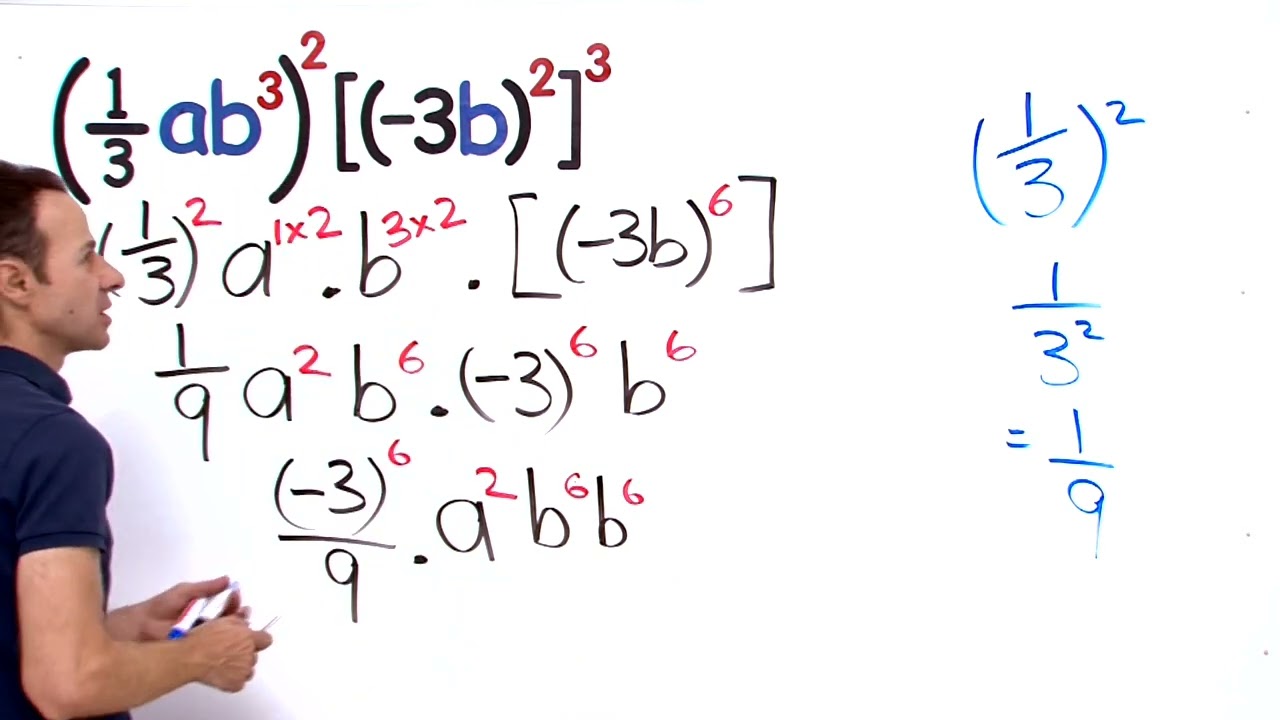 (1/3 ab³)² [(-3b)²]³
(1/3)² a¹ˣ² . b³ˣ² . [(-3b)⁶]
1/9 a² b⁶ . (-3)⁶ b⁶
(-3)⁶/9 . a² b⁶ b⁶
(1/3)²
1/3²
= 1/9